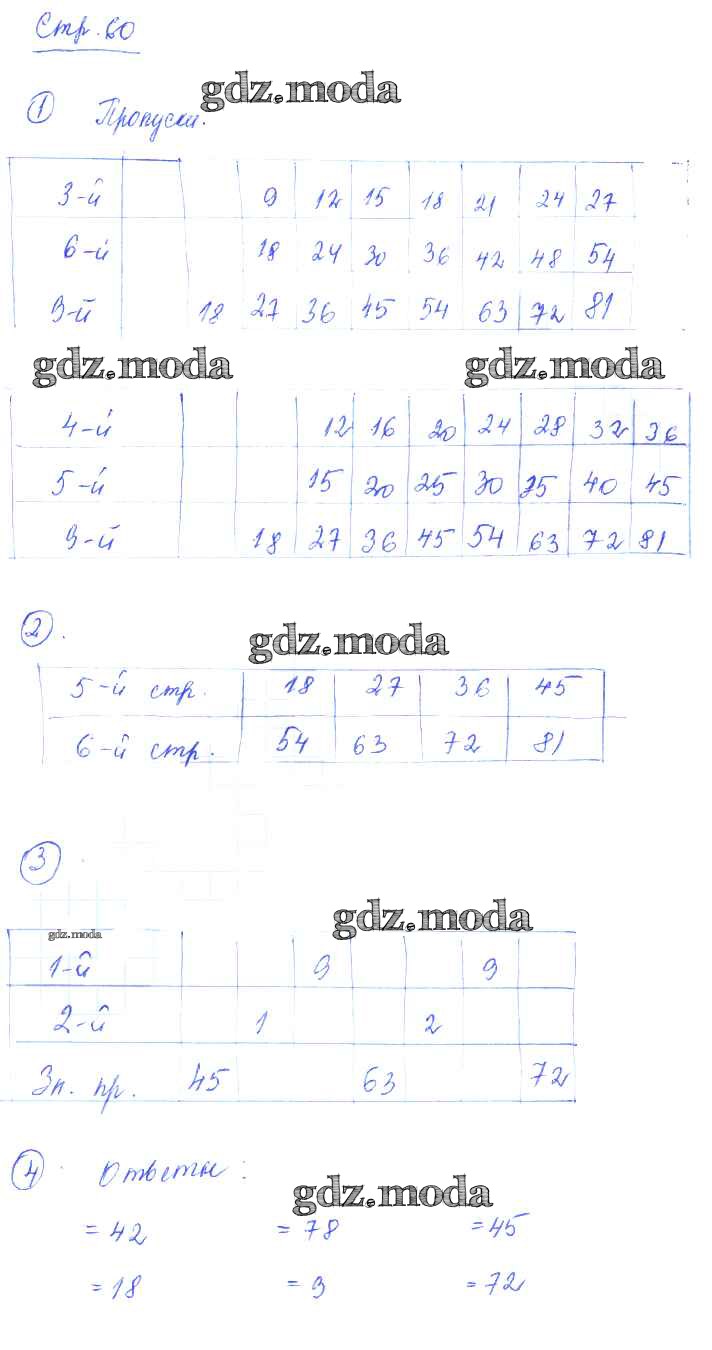 Стр. 60
gdz.moda
1 Пропуски.
3-й 9 12 15 18 21 24 27
6-й 18 24 30 36 42 48 54
9-й 18 27 36 45 54 63 72 81
gdz.moda gdz.moda
4-й 12 16 20 24 28 32 36
5-й 15 20 25 30 35 40 45
9-й 18 27 36 45 54 63 72 81
2.
gdz.moda
5-й стр. 18 27 36 45
6-й стр. 54 63 72 81
3
gdz.moda
gdz.moda
1-й 9 9
2-й 1 2
Зн. пр. 45 63 72
4. Ответы:
gdz.moda
= 42 = 78 = 45
= 18 = 9 = 72